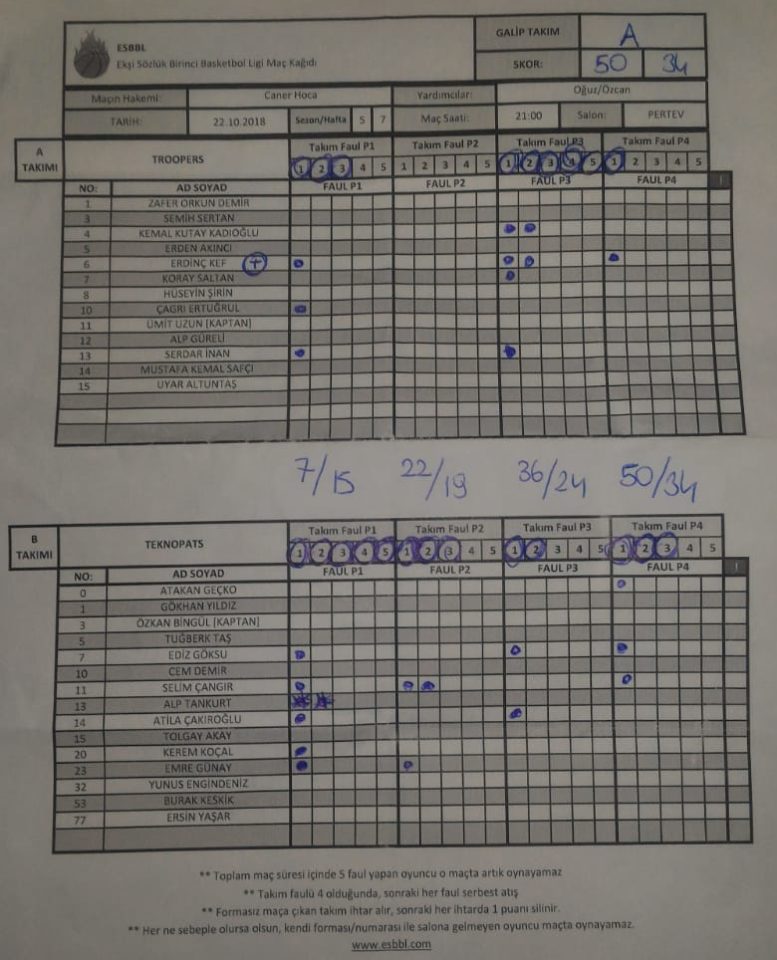 ESBBL
Ekşi Sözlük Birinci Basketbol Ligi Maç Kağıdı
GALİP TAKIM A
SKOR: 50 34
Maçın Hakemi: Caner Hoca Yardımcılar: Oğuz/Özcan
TARİH: 22.10.2018 Sezon/Hafta 5 7 Maç Saati: 21:00 Salon: PERTEV
A TAKIMI TROOPERS Takım Faul P1 Takım Faul P2 Takım Faul P3 Takım Faul P4
1 2 3 4 5 1 2 3 4 5 1 2 3 4 5 1 2 3 4 5
NO: AD SOYAD FAUL P1 FAUL P2 FAUL P3 FAUL P4 !
1 ZAFER ORKUN DEMİR
3 SEMİH SERTAN
4 KEMAL KUTAY KADIOĞLU
5 ERDEN AKINCI
6 ERDİNÇ KEF T
7 KORAY SALTAN
8 HÜSEYİN ŞİRİN
10 ÇAĞRI ERTUĞRUL
11 ÜMİT UZUN [KAPTAN]
12 ALP GÜRELİ
13 SERDAR İNAN
14 MUSTAFA KEMAL SAFÇI
15 UYAR ALTUNTAŞ
7/15 22/19 36/24 50/34
B TAKIMI TEKNOPATS Takım Faul P1 Takım Faul P2 Takım Faul P3 Takım Faul P4
1 2 3 4 5 1 2 3 4 5 1 2 3 4 5 1 2 3 4 5
NO: AD SOYAD FAUL P1 FAUL P2 FAUL P3 FAUL P4 !
0 ATAKAN GEÇKO
1 GÖKHAN YILDIZ
3 ÖZKAN BİNGÜL [KAPTAN]
5 TUĞBERK TAŞ
7 EDİZ GÖKSU
10 CEM DEMİR
11 SELİM ÇANGIR
13 ALP TANKURT
14 ATİLA ÇAKIROĞLU
15 TOLGAY AKAY
20 KEREM KOÇAL
23 EMRE GÜNAY
32 YUNUS ENGİNDENİZ
53 BURAK KESKİK
77 ERSİN YAŞAR
** Toplam maç süresi içinde 5 faul yapan oyuncu o maçta artık oynayamaz
** Takım faulü 4 olduğunda, sonraki her faul serbest atış
** Formasız maça çıkan takım ihtar alır, sonraki her ihtarda 1 puanı silinir.
** Her ne sebeple olursa olsun, kendi forması/numarası ile salona gelmeyen oyuncu maçta oynayamaz.
www.esbbl.com